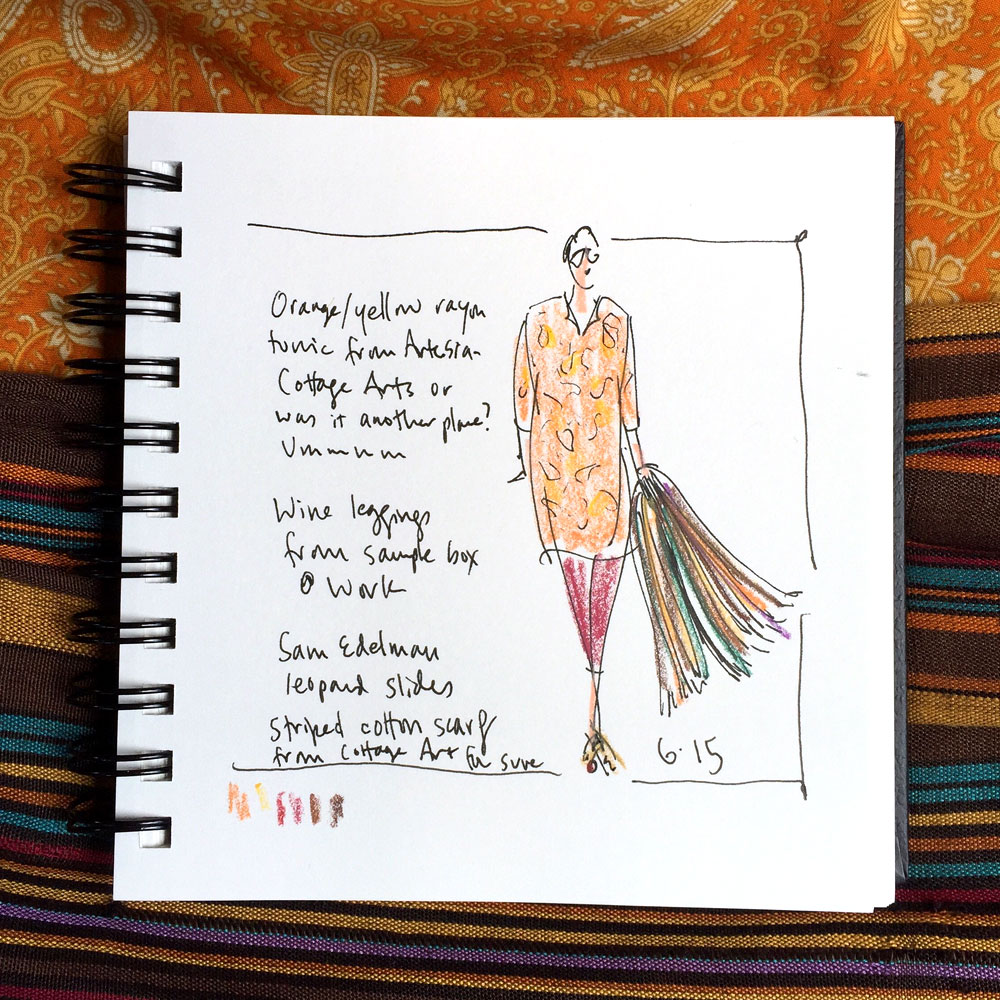 Orange/yellow rayon
tunic from Artesia-
Cottage Arts or
was it another place?
Ummmm
Wine leggings
from sample box
@ Work
Sam Edelman
leopard slides
Striped cotton scarf
from Cottage Art for sure
6.15